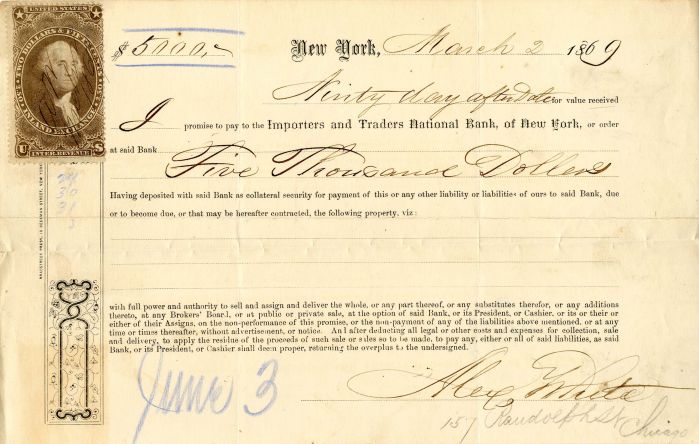 UNITED STATES
TWO DOLLARS & FIFTY CENTS
INLAND EXCHANGE
U S
INTER. REVENUE
$5000,-
New York, March 2 1869
Ninty day after Date for value received
I promise to pay to the Importers and Traders National Bank, of New York, or order
at said Bank Five Thousand Dollars
Having deposited with said Bank as collateral security for payment of this or any other liability or liabilities of ours to said Bank, due
or to become due, or that may be hereafter contracted, the following property, viz:
with full power and authority to sell and assign and deliver the whole, or any part thereof, or any substitutes therefor, or any additions
thereto, at any Brokers' Board, or at public or private sale, at the option of said Bank, or its President, or Cashier, or its or their or
either of their Assigns, on the non-performance of this promise, or the non-payment of any of the liabilities above mentioned, or at any
time or times thereafter, without advertisement, or notice. And after deducting all legal or other costs and expenses for collection, sale
and delivery, to apply the residue of the proceeds of such sale or sales so to be made, to pay any, either or all of said liabilities, as said
Bank, or its President, or Cashier shall deem proper, returning the overplus to the undersigned.
Alex White
June 3
157 Randolph St Chicago